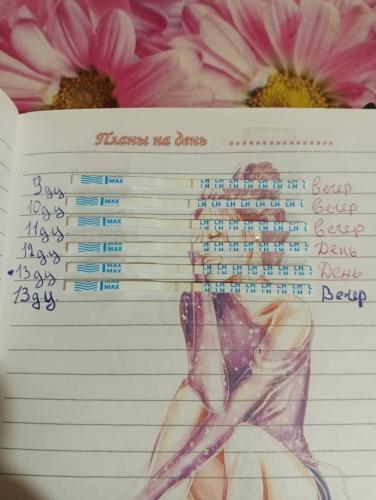 Планы на день
9 ду MAX LH LH LH LH LH LH LH вечер
10 ду MAX LH LH LH LH LH LH LH вечер
11 ду MAX LH LH LH LH LH LH LH вечер
12 ду MAX LH LH LH LH LH LH LH День
13 ду MAX LH LH LH LH LH LH LH День
13 д.ц. MAX LH LH LH LH LH LH LH Вечер